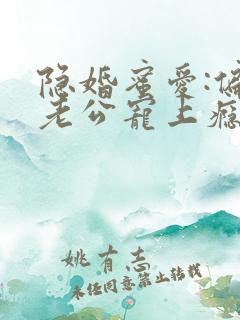 隐婚蜜爱:偏
老公宠上瘾
姚有志
未经同意禁止转载